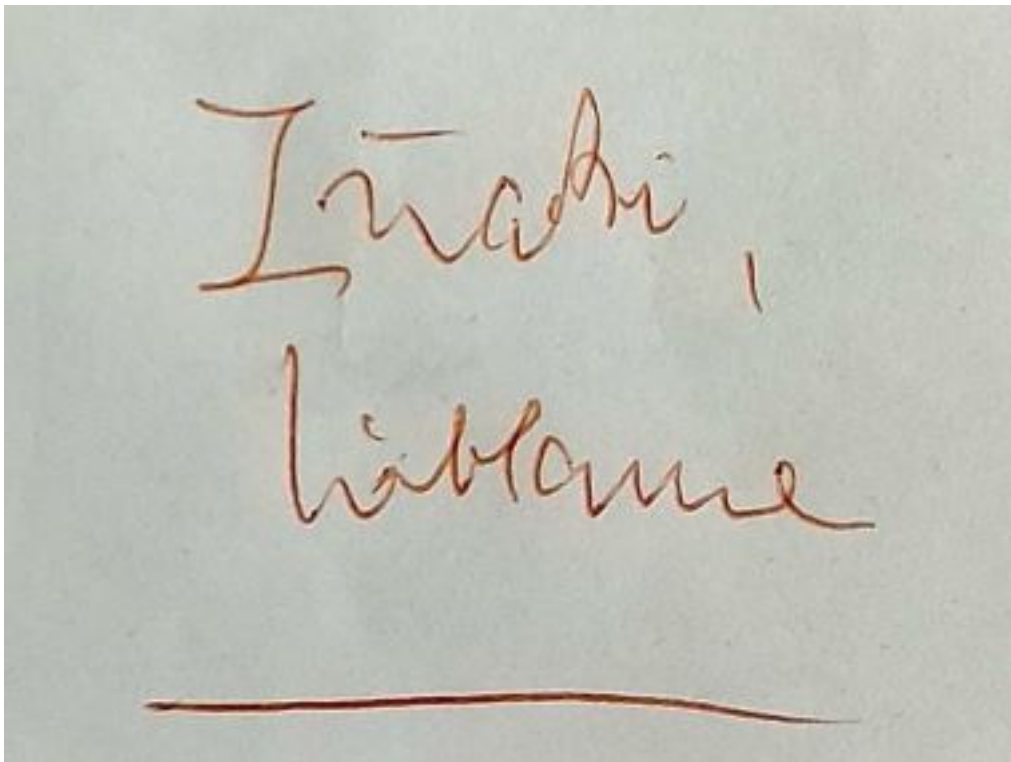 Iñaki,
háblame